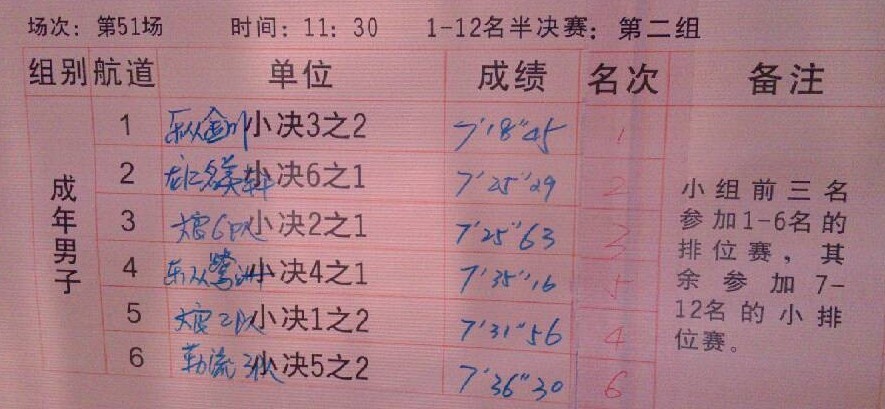 场次：第51场 时间：11：30 1-12名半决赛：第二组
组别 航道 单位 成绩 名次 备注
成年男子
1 乐从 小决3之2 7'18"45 1
2 小决6之1 7'25"29 2
3 小决2之1 7'25"63 3
4 乐从鹭洲 小决4之1 7'35"16 5
5 小决1之2 7'31"56 4
6 勒流3队 小决5之2 7'36"30 6
小组前三名
参加1-6名的
排位赛，其
余参加7-
12名的小排
位赛。